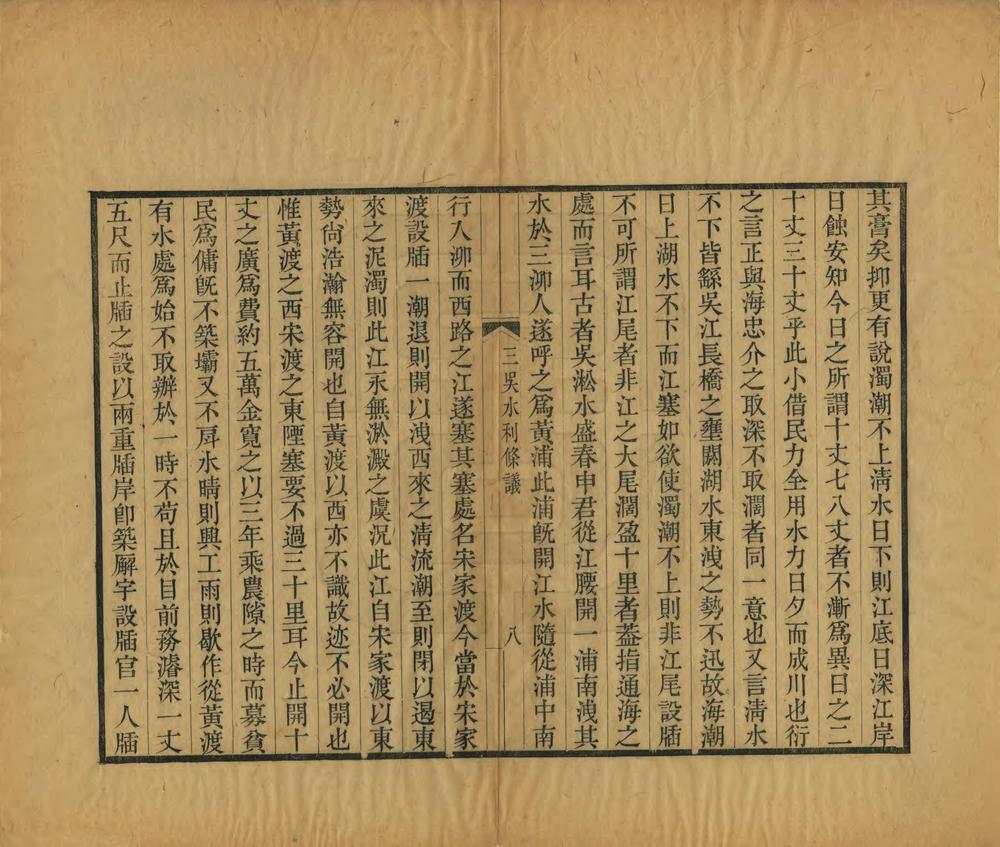 其膏矣抑更有說濁潮不上淸水日下則江底日深江岸
日蝕安知今日之所謂十丈七八丈者不漸爲異日之二
十丈三十丈乎此小借民力全用水力日夕而成川也衍
之言正與海忠介之取深不取濶者同一意也又言淸水
不下皆繇吳江長橋之壅閼湖水東洩之勢不迅故海潮
日上湖水不下而江塞如欲使濁潮不上則非江尾設牐
不可所謂江尾者非江之大尾濶盈十里者蓋指通海之
處而言耳古者吳淞水盛春申君從江腰開一浦南洩其
水於三泖人遂呼之爲黃浦此浦旣開江水隨從浦中南
三吳水利條議
八
行入泖而西路之江遂塞其塞處名宋家渡今當於宋家
渡設牐一潮退則開以洩西來之淸流潮至則閉以遏東
來之泥濁則此江永無淤澱之虞況此江自宋家渡以東
勢尙浩瀚無容開也自黃渡以西亦不識故迹不必開也
惟黃渡之西宋渡之東陻塞要不過三十里耳今止開十
丈之廣爲費約五萬金寬之以三年乘農隙之時而募貧
民爲傭旣不築壩又不戽水晴則興工雨則歇作從黃渡
有水處爲始不取辦於一時不苟且於目前務濬深一丈
五尺而止牐之設以兩重牐岸卽築廨宇設牐官一人牐